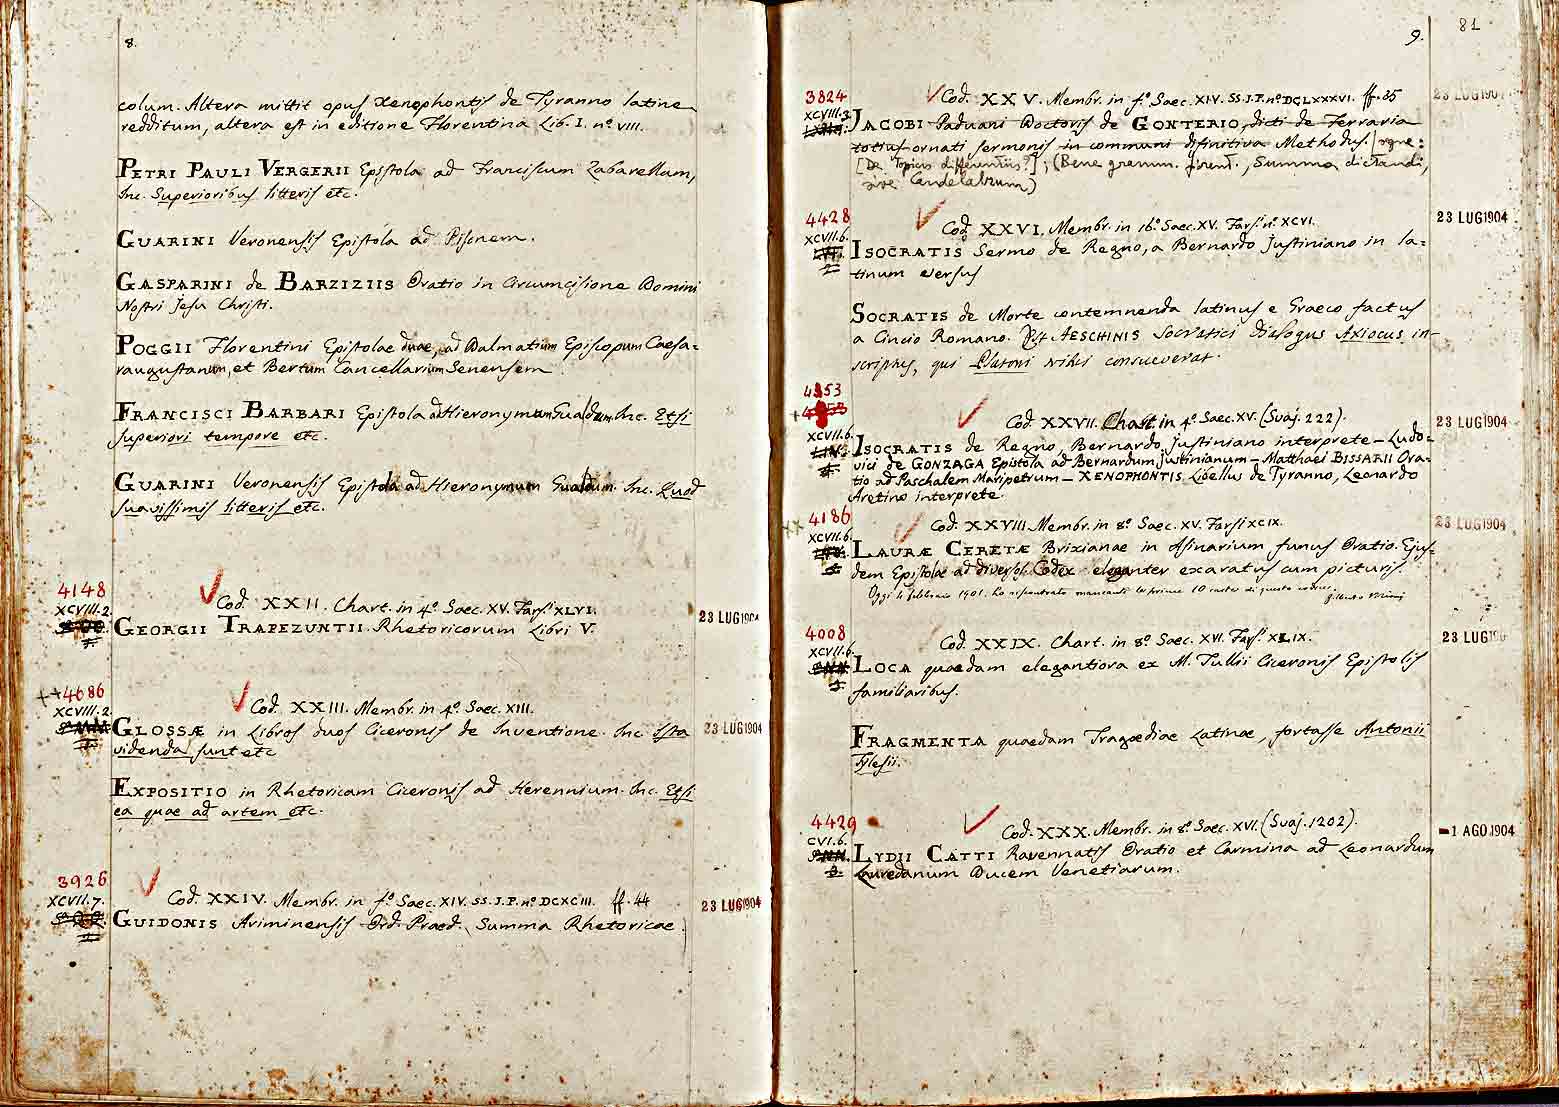 8.
colum. Altera mittit opus Xenophontis de Tyranno latine
redditum, altera est in editione Florentina Lib. I. nº VIII.
PETRI PAULI VERGERII Epistola ad Franciscum Zabarellam,
Inc. Superioribus litteris etc.
GUARINI Veronensis Epistola ad Pisonem.
GASPARINI de BARZIZIIS Oratio in Circumcisione Domini
Nostri Jesu Christi.
POGGII Florentini Epistolae duae, ad Dalmatium Episcopum Caesa=
raugustanum, et Bertum Cancellarium Senensem
FRANCISCI BARBARI Epistola ad Hieronymum Gualdum. Inc. Etsi
superiori tempore etc.
GUARINI Veronensis Epistola ad Hieronymum Gualdum. Inc. Quod
suavissimis litteris etc.
4148
XCVIII.2.
Cod. XXII. Chart. in 4º. Saec. XV. Fars. XLVI.
23 LUG 1904
GEORGII TRAPEZUNTII Rhetoricorum Libri V.
++4686
XCVIII.2.
Cod. XXIII. Membr. in 4º. Saec. XIII.
GLOSSÆ in Libros duos Ciceronis de Inventione. Inc. Ista
23 LUG 1904
videnda sunt etc
EXPOSITIO in Rhetoricam Ciceronis ad Herennium. Inc. Etsi
ea quae ad artem etc.
3926
XCVII.7.
Cod. XXIV. Membr. in fº. Saec. XIV. SS. J. P. nº DCXCIII. ff. 44
23 LUG 1904
GUIDONIS Ariminensis Ord. Praed. Summa Rhetoricae
9.
81
3824
XCVIII.3.
Cod. XXV. Membr. in fº. Saec. XIV. SS. J. P. nº DCLXXXVI. ff. 35
23 LUG 1904
JACOBI Paduani Doctoris de GONTERIO, dicti de Ferraria
totius ornati sermonis in communi difinitiva Methodus.
[De Topicis differentiis?]; (Bene grammat. Florent., Summa dictandi,
sive Candelabrum)
4428
XCVII.6.
Cod. XXVI. Membr. in 16º. Saec. XV. Fars. nº. XCVI.
23 LUG 1904
ISOCRATIS Sermo de Regno, a Bernardo Justiniano in la=
tinum versus
SOCRATIS de Morte contemnenda latinus e Graeco factus
a Cincio Romano. Est AESCHINIS Socratici Dialogus Axiocus in-
scriptus, qui Platoni tribui consueverat.
4253
XCVII.6.
Cod. XXVII. Chart. in 4º. Saec. XV. (Svaj. 222).
23 LUG 1904
ISOCRATIS de Regno, Bernardo Justiniano interprete – Ludo=
vici de GONZAGA Epistola ad Bernardum Justinianum – Matthaei BISSARII Ora=
tio ad Paschalem Maripetrum – XENOPHONTIS Libellus de Tyranno, Leonardo
Aretino interprete.
xx 4186
XCVII.6.
Cod. XXVIII. Membr. in 8º. Saec. XV. Farsi XCIX.
23 LUG 1904
LAURÆ CERETÆ Brixianae in Asinarium funus Oratio. Ejus=
dem Epistolae ad diversos. Codex eleganter exaratus cum picturis
Oggi 4 febbraio 1901. ho riscontrato mancanti le prime 10 carte di questo codice
4008
XCVII.6.
Cod. XXIX. Chart. in 8º. Saec. XVI. Fars. XLIX.
23 LUG
LOCA quaedam elegantiora ex M. Tullii Ciceronis Epistolis
familiaribus.
FRAGMENTA quaedam Tragoediae Latinae, fortasse Antonii
Tylesii.
4429
CVI.6.
Cod. XXX. Membr. in 8º. Saec. XVI. (Svaj. 1202).
-1 AGO 1904
LYDII CATTI Ravennatis Oratio et Carmina ad Leonardum
Lauredanum Ducem Venetiarum.